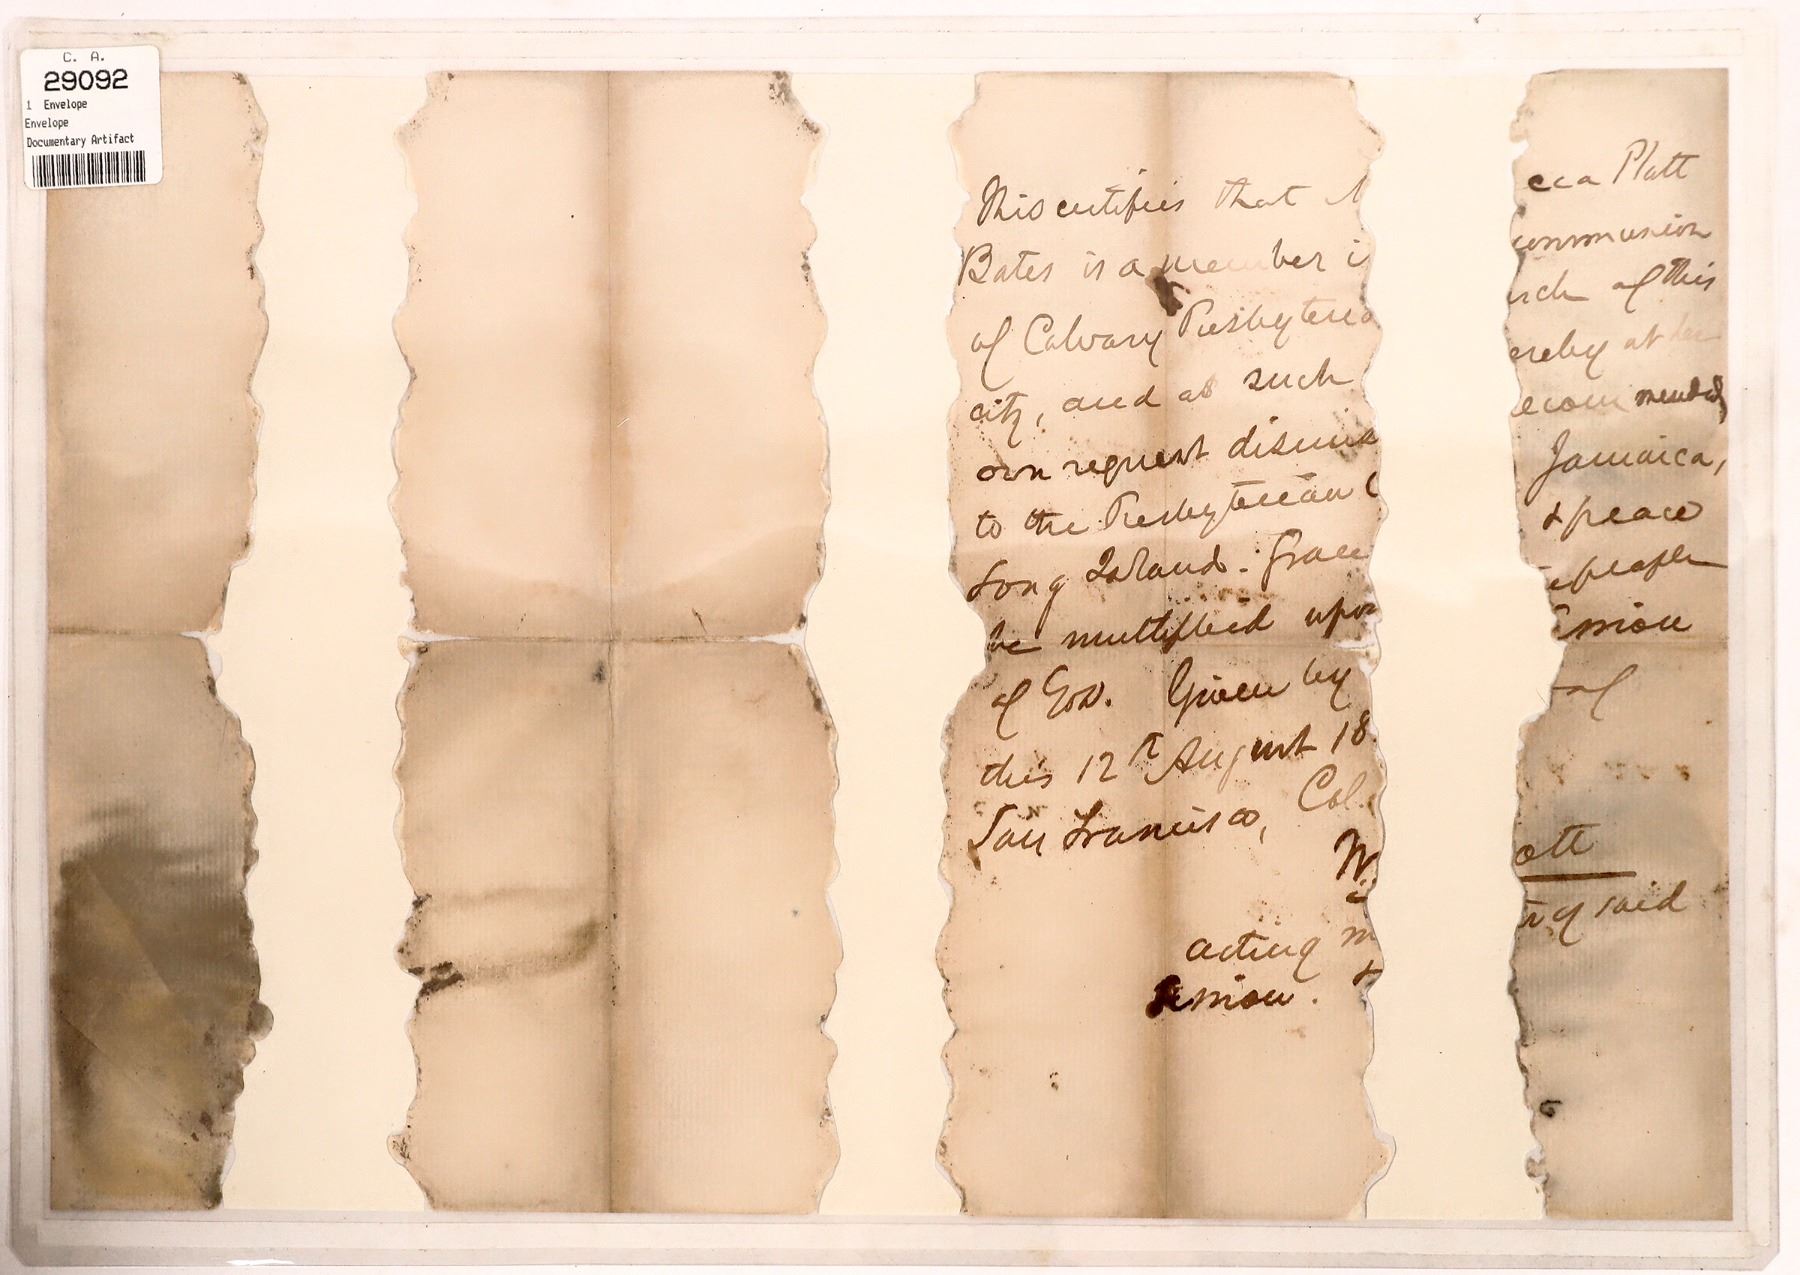 C. A.
29092
1 Envelope
Envelope
Documentary Artifact
This certifies that ecca Platt
Bates is a member i communion
of Calvary Presbyteria urch of this
city, and as such ereby at her
own request dismis recommended
to the Presbyterian C Jamaica,
Long Island. Grace & peace
be multiplied upon e people
of God. Given by ession
this 12th August 18 of
San Francisco, Cal.
W. ott
acting m r of said
session. &